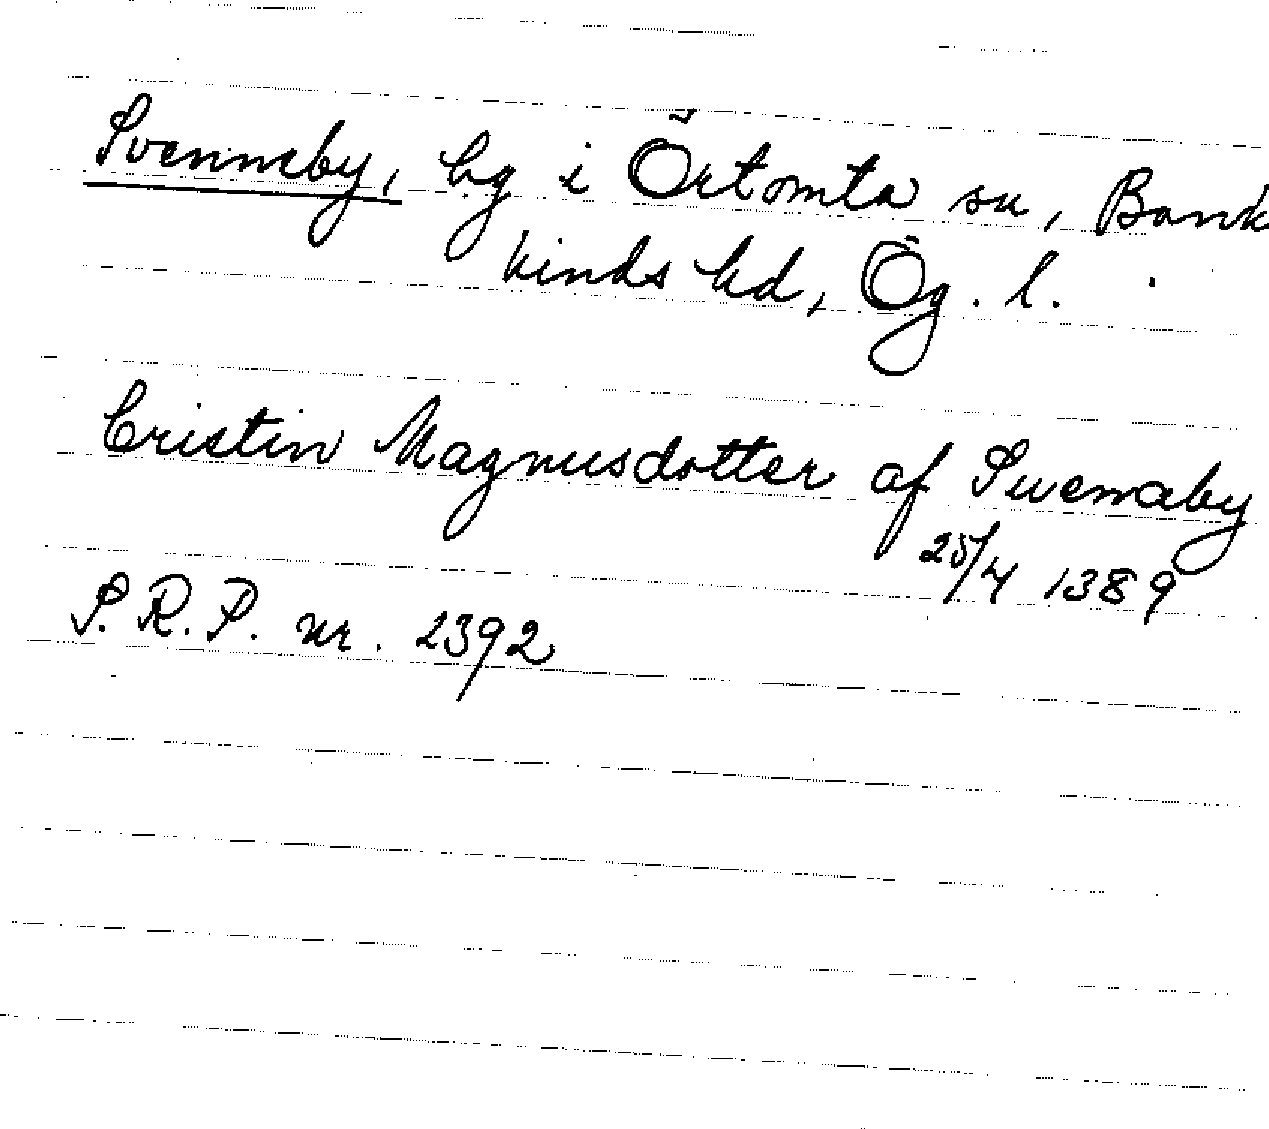 Svenneby, hg i Örtomta sn, Bank
kinds hd, Ög. l.
Cristin Magnusdotter af Swenaby
25/4 1389
S.R.P. nr. 2392